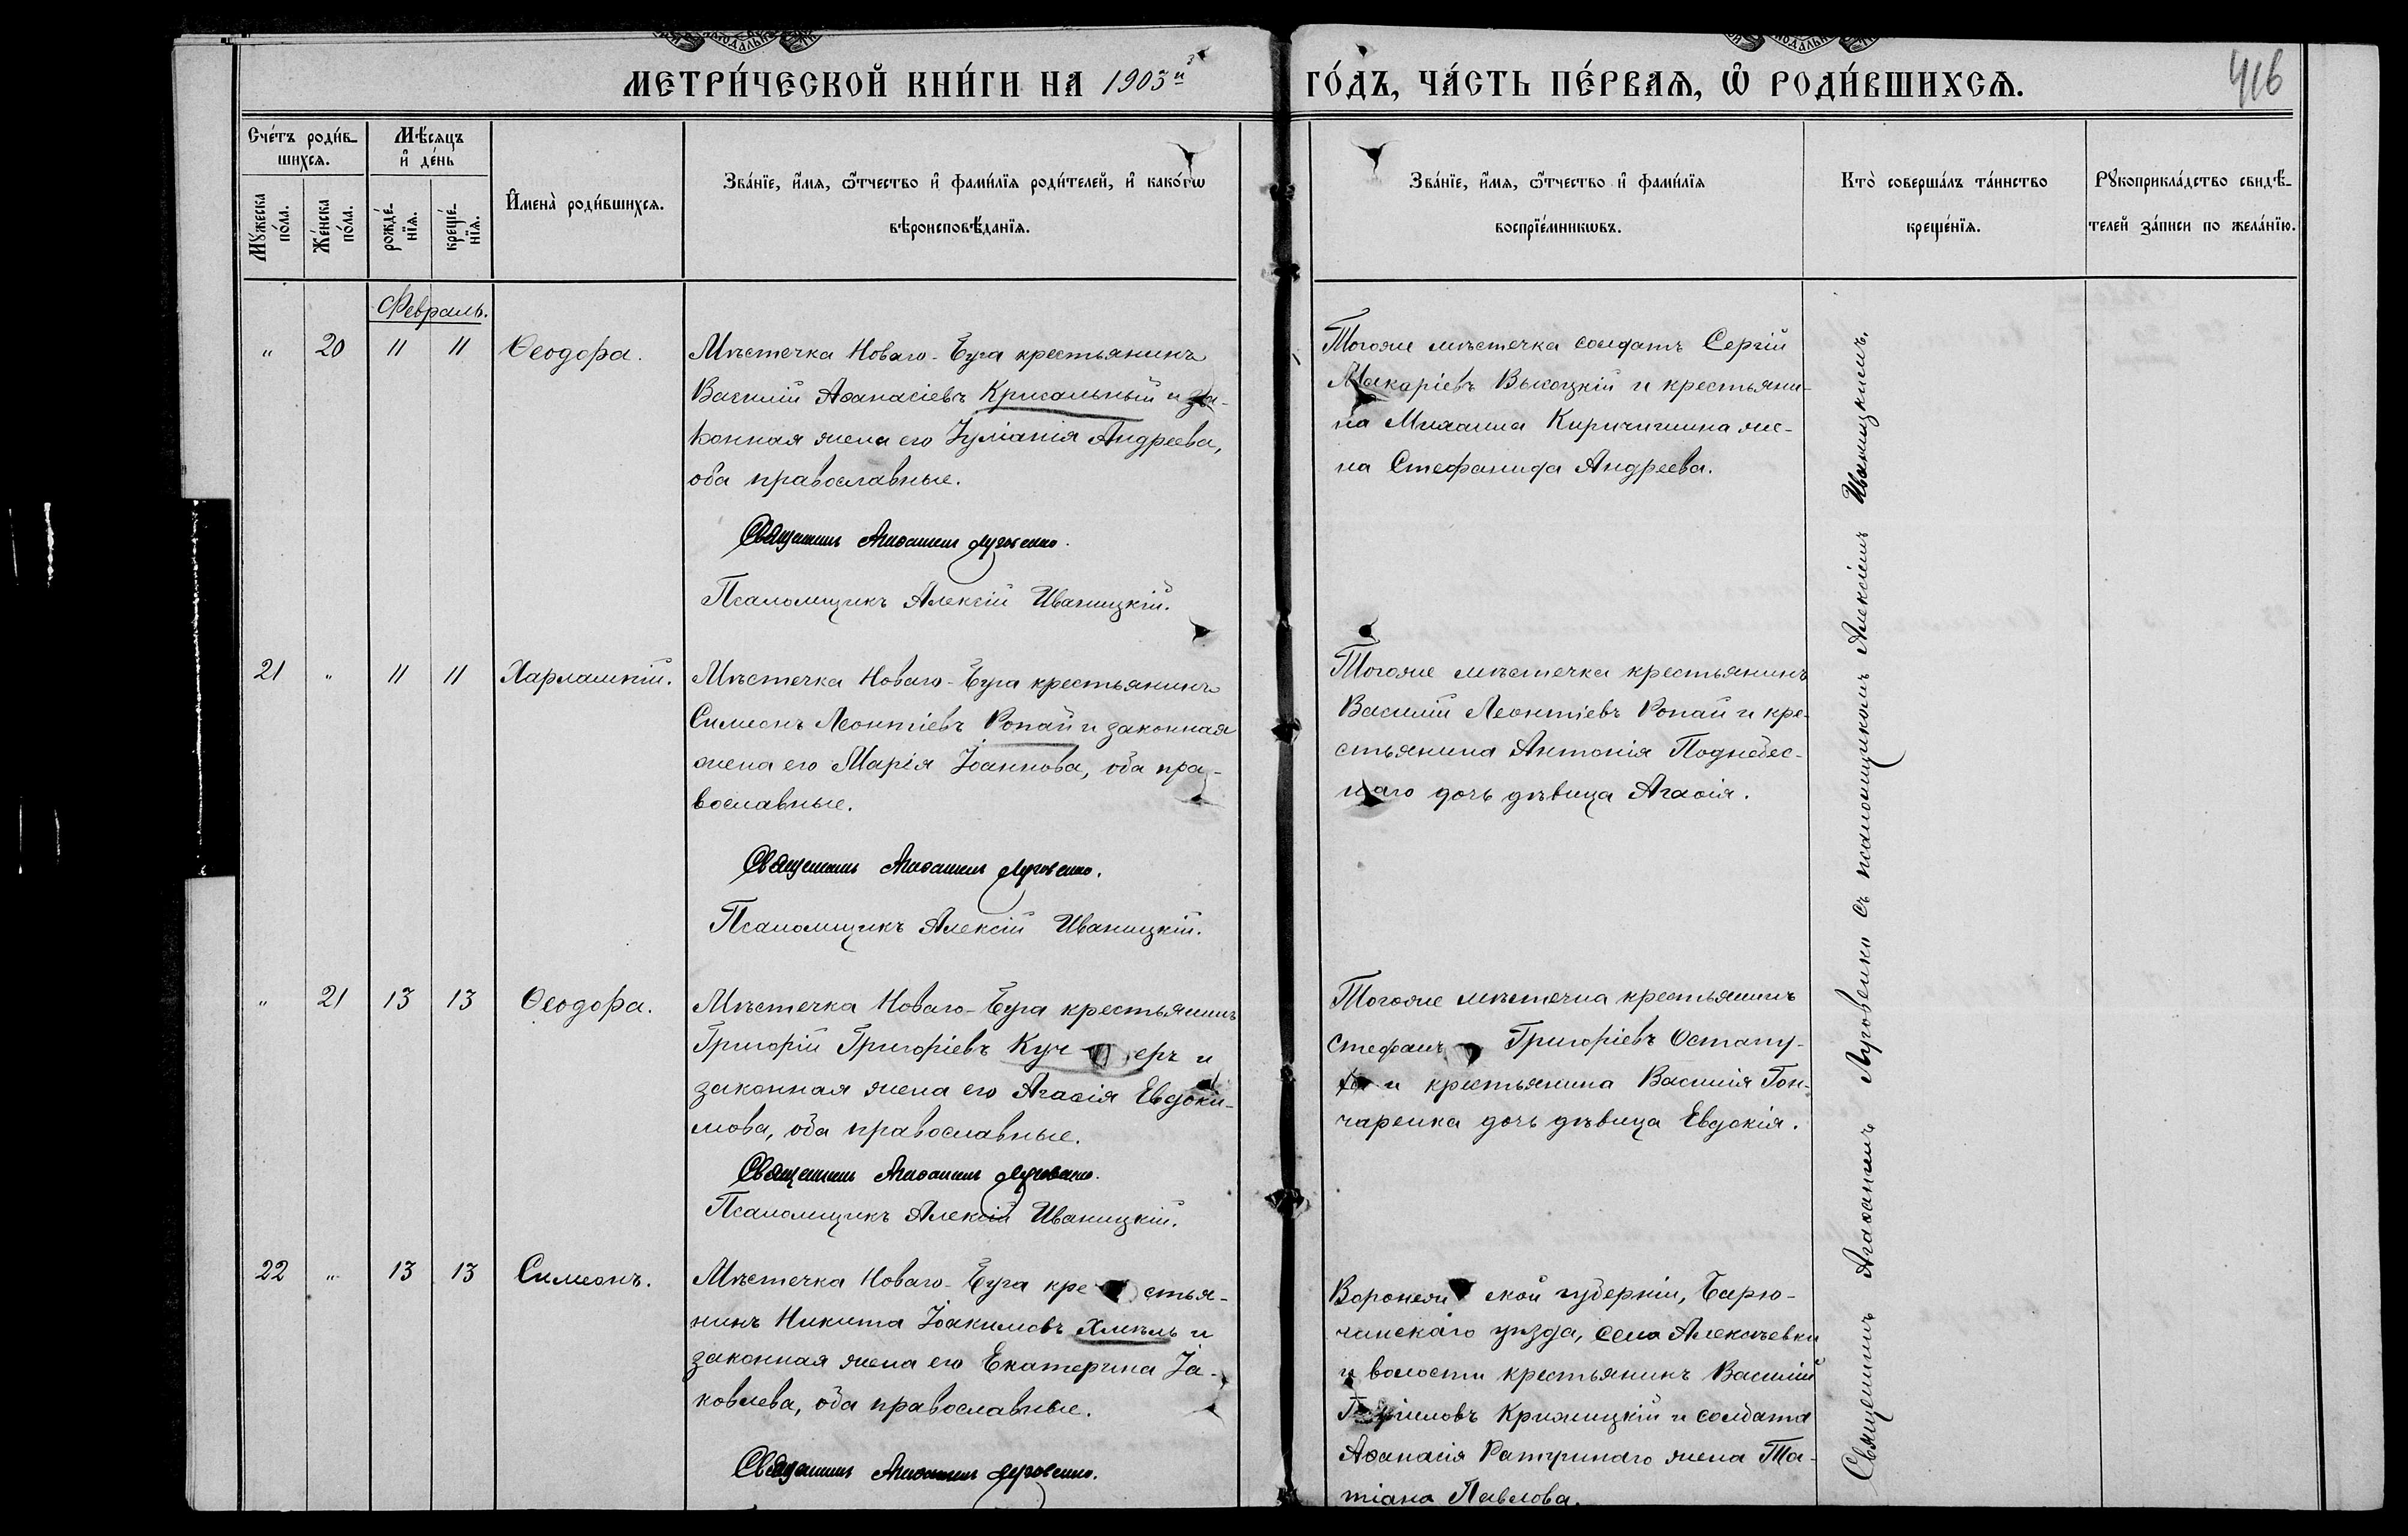 МЕТРИ́ЧЕСКОЙ КНИ́ГИ НА 1903й ГО́ДЪ, ЧА́СТЬ ПЕ́РВАѦ, Ѡ҆ РОДИ́ВШИХСѦ.
416
Сче́тъ роди́в-
шихсѧ.
Мѣ́сѧцъ
и҆ де́нь
Мꙋ́жеска
по́ла.
Же́нска
по́ла.
рожде́-
нїѧ.
креще́-
нїѧ.
И҆мена̀ роди́вшихсѧ.
Зва́нїе, и҆́мѧ, ѻ҆́тчество и҆ фами́лїѧ роди́телей, и҆ како́гѡ
вѣроисповѣ́данїѧ.
Зва́нїе, и҆́мѧ, ѻ҆́тчество и҆ фами́лїѧ
воспрїе́мникѡвъ.
Кто̀ соверша́лъ та́инство
креще́нїѧ.
Рꙋкоприкла́дство свидѣ́-
телей за́писи по жела́нїю.
Февраль.
" 20 11 11 Ѳеодора.
Мѣстечка Новаго-Буга крестьянинъ
Василій Аѳанасіевъ Крисальный и за-
конная жена его Іуліанія Андреева,
оба православные.
Священникъ Агаѳангелъ Луговенко.
Псаломщикъ Алексій Иваницкій.
Тогоже мѣстечка солдатъ Сергій
Макаріевъ Высоцкій и крестьяни-
на Михаила Киричишина же-
на Стефанида Андреева.
21 " 11 11 Харлампій.
Мѣстечка Новаго-Буга крестьянинъ
Симеонъ Леонтіевъ Ропай и законная
жена его Марія Іоаннова, оба пра-
вославные.
Священникъ Агаѳангелъ Луговенко.
Псаломщикъ Алексій Иваницкій.
Тогоже мѣстечка крестьянинъ
Василій Леонтіевъ Ропай и кре-
стьянина Антонія Поднебес-
наго дочь дѣвица Агаѳія.
" 21 13 13 Ѳеодора.
Мѣстечка Новаго-Буга крестьянинъ
Григорій Григоріевъ Кучеръ и
законная жена его Агаѳія Евдоки-
мова, оба православные.
Священникъ Агаѳангелъ Луговенко.
Псаломщикъ Алексій Иваницкій.
Тогоже мѣстечка крестьянинъ
Стефанъ Григоріевъ Остапу-
и крестьянина Василія Гон-
чаренка дочь дѣвица Евдокія.
22 " 13 13 Симеонъ.
Мѣстечка Новаго-Буга крестья-
нинъ Никита Іоакимовъ Хмѣль и
законная жена его Екатерина Іа-
ковлева, оба православные.
Священникъ Агаѳангелъ Луговенко.
Воронежской губерніи, Бирю-
чинскаго уѣзда, села Алексѣевки
и волости крестьянинъ Василій
Крижицкій и солдата
Аѳанасія Ратушнаго жена Та-
тіана Павлова.
Священникъ Агаѳангелъ Луговенко съ псаломщикомъ Алексіемъ Иваницкимъ.